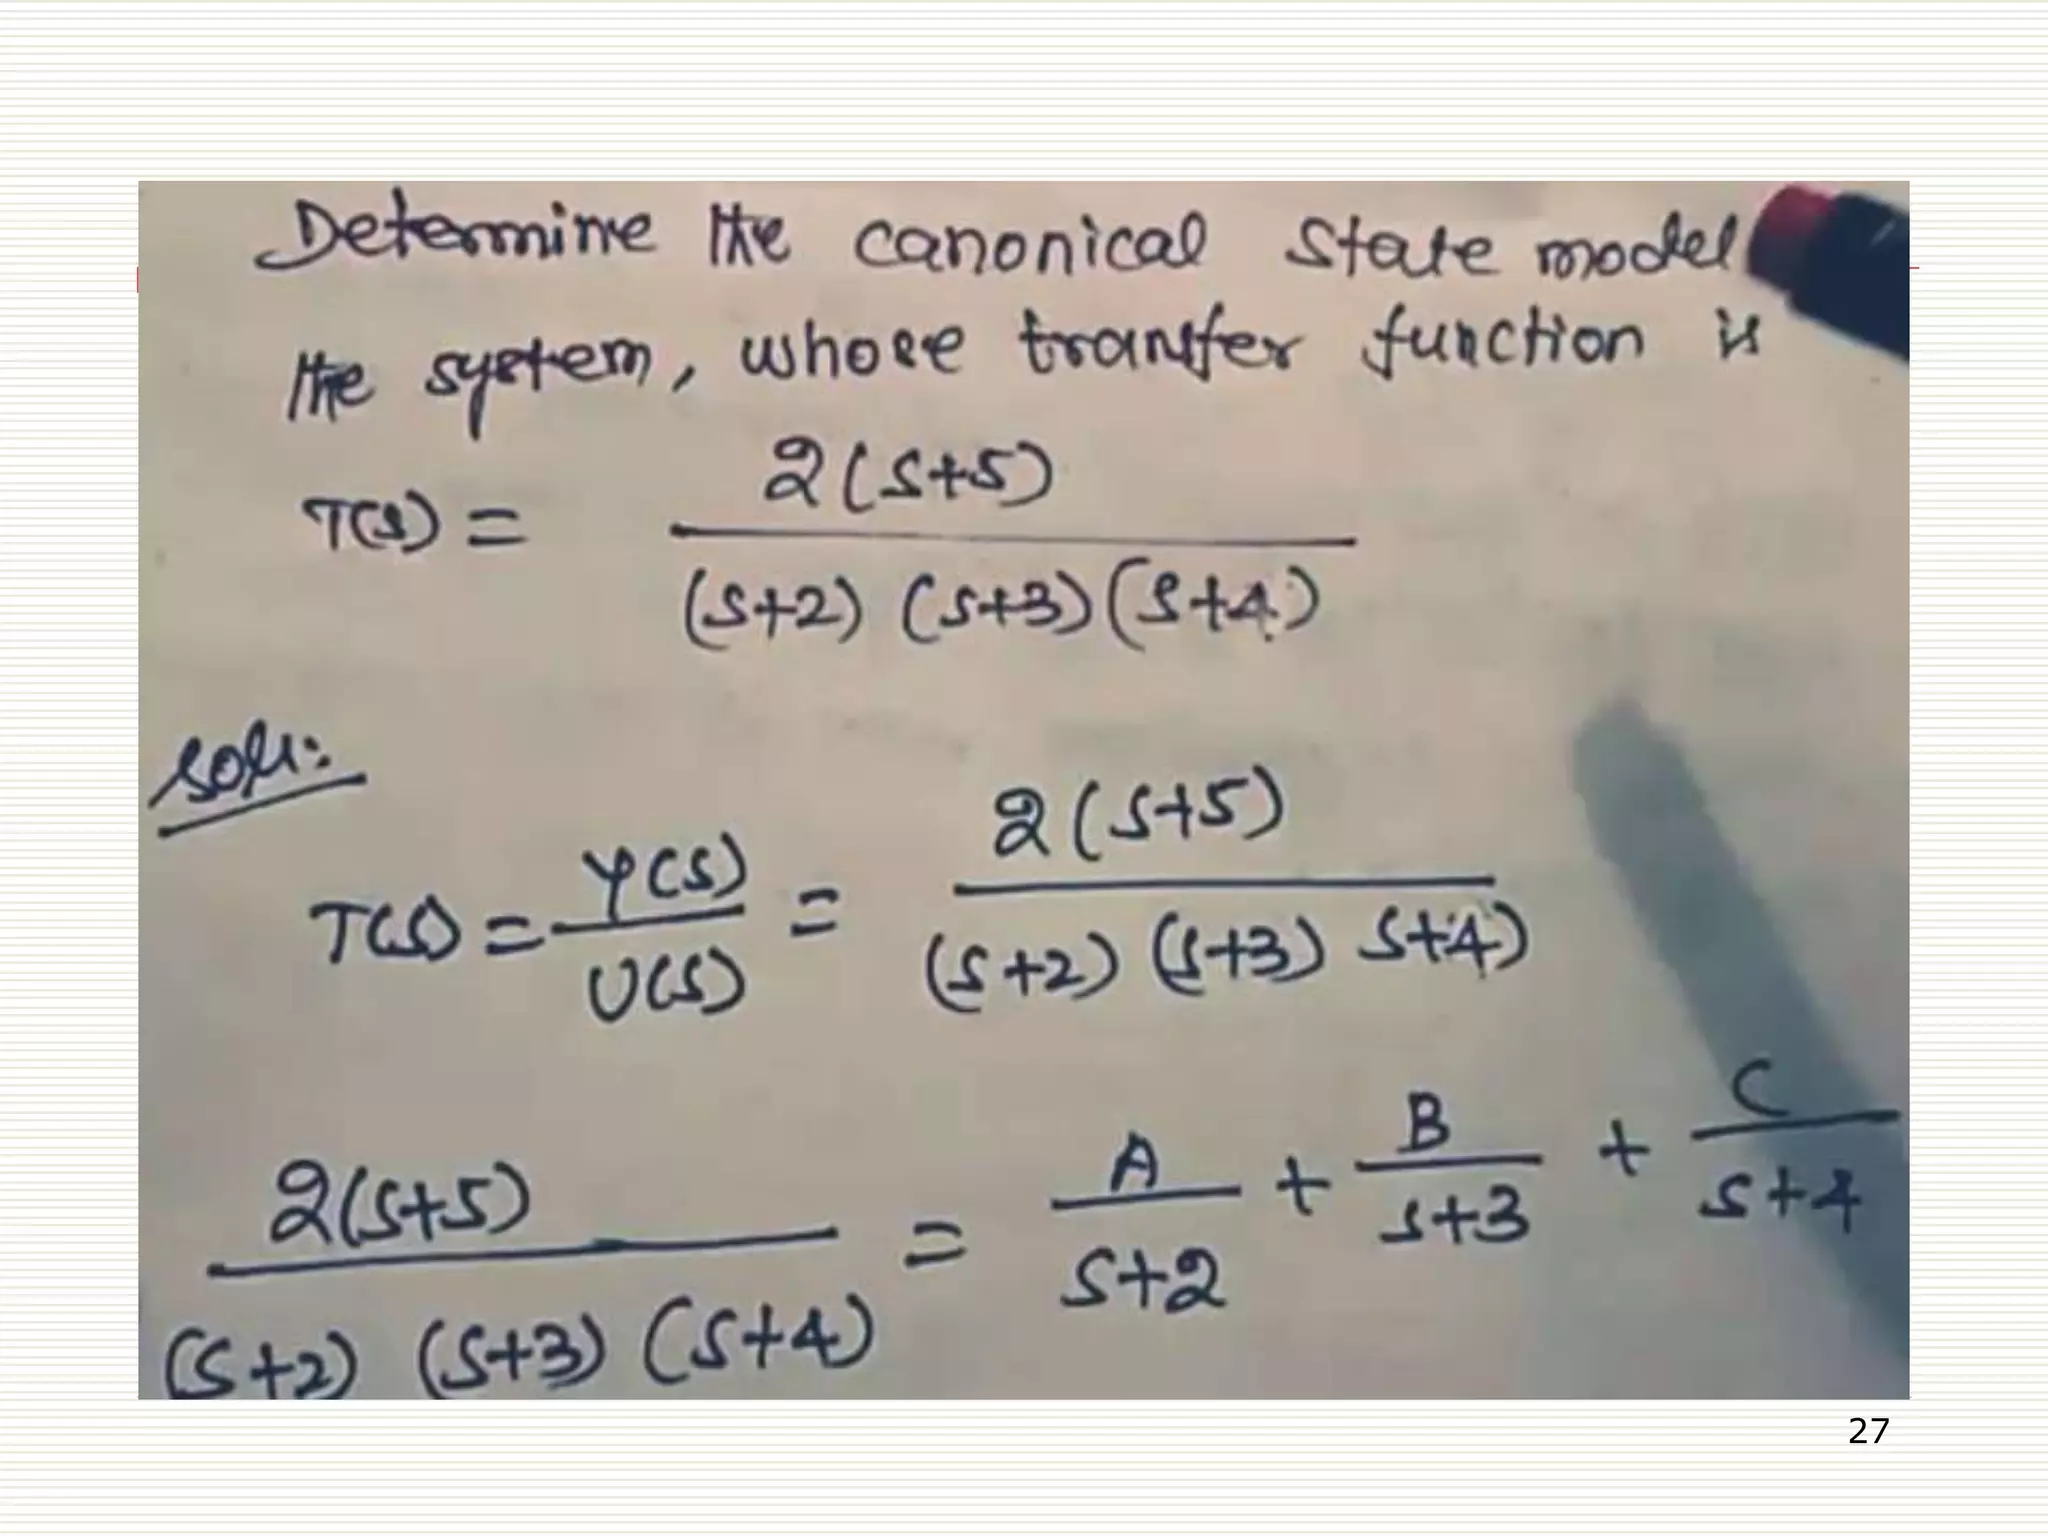 Determine the canonical state model
the system, whose transfer function is
T(s) = 2(s+5) / (s+2) (s+3) (s+4)
Soln:
T(s) = Y(s) / U(s) = 2(s+5) / (s+2) (s+3) s+4)
2(s+5) / (s+2) (s+3) (s+4) = A / s+2 + B / s+3 + C / s+4
27